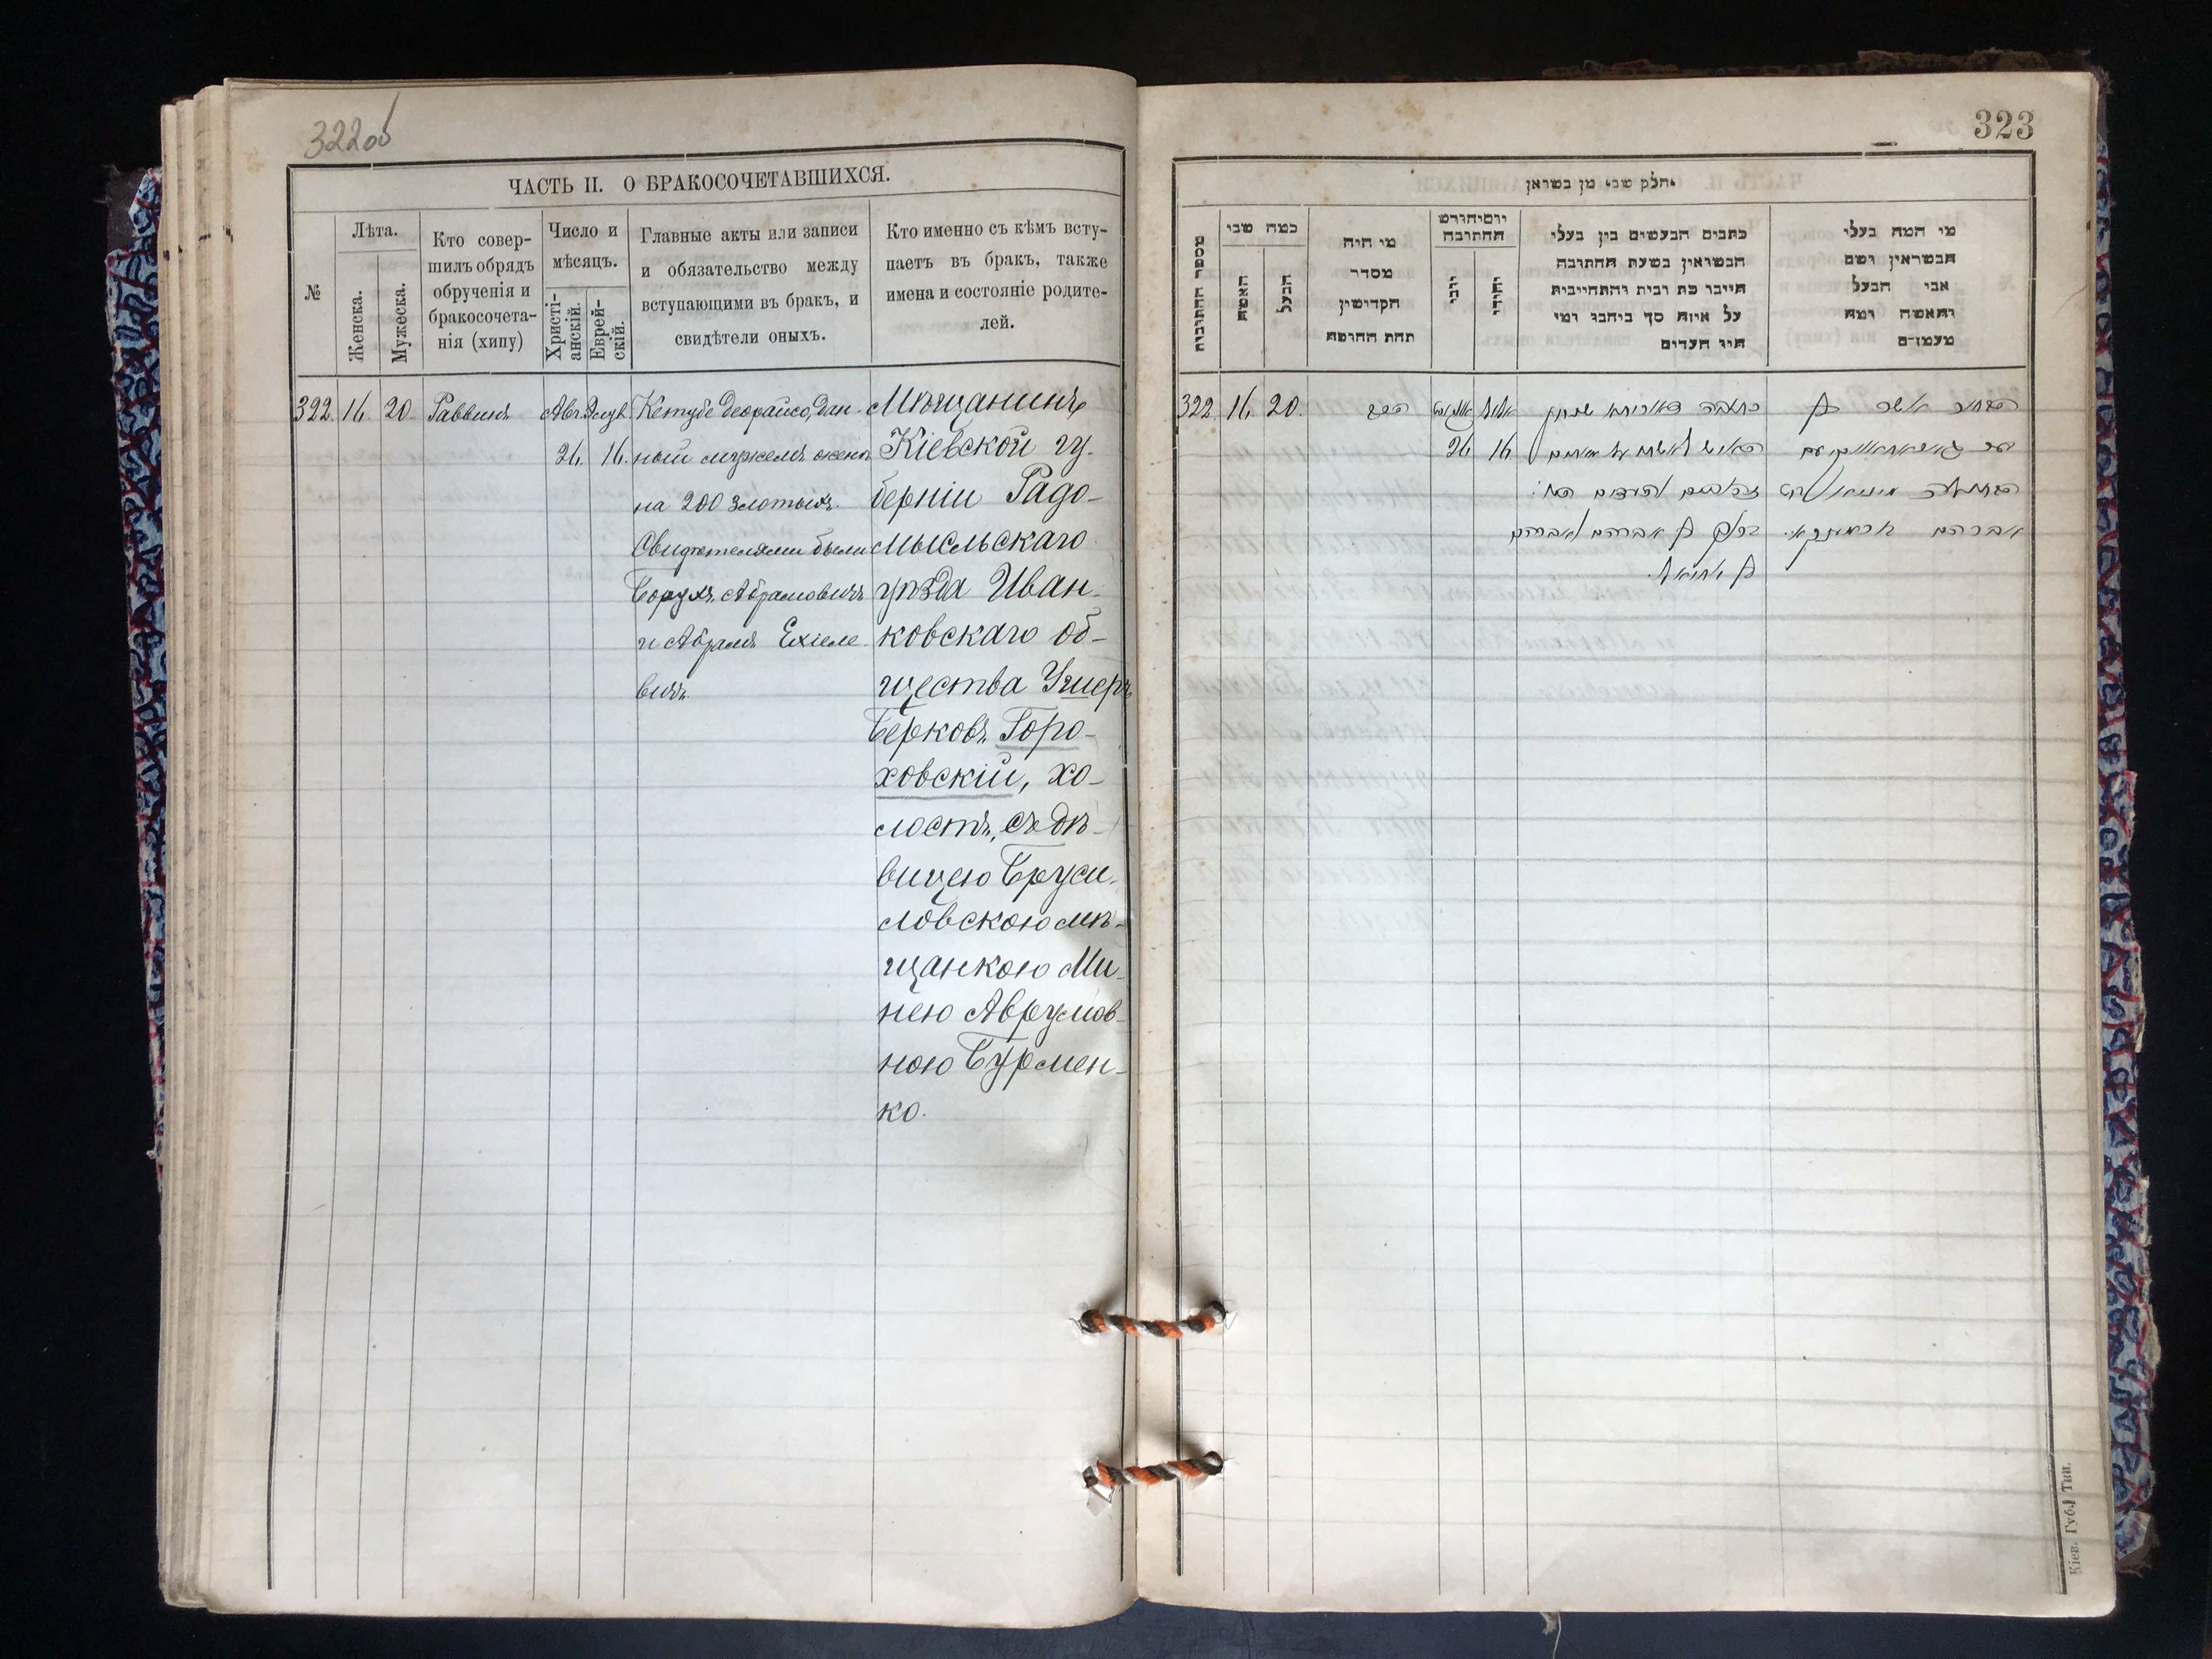 322 об
ЧАСТЬ II. О БРАКОСОЧЕТАВШИХСЯ.
№
Лѣта.
Женска.
Мужеска.
Кто совер-
шилъ обрядъ
обрученія и
бракосочета-
нія (хипу)
Число и
мѣсяцъ.
Христі-
анскій.
Еврей-
скій.
Главные акты или записи
и обязательство между
вступающими въ бракъ, и
свидѣтели оныхъ.
Кто именно съ кѣмъ всту-
паетъ въ бракъ, также
имена и состояніе родите-
лей.
322. 16. 20. Раввинъ
Авг.
26. 16.
Кетубе Деорайсо, дан-
ный мужемъ женѣ
на 200 злотыхъ.
Свидѣтелями были
Борухъ Абрамовичъ
и Абрамъ Ехіеле-
вичъ.
Мѣщанинъ
Кіевской гу-
берніи Радо-
мысльскаго
уѣзда Иван-
ковскаго об-
щества Ушеръ
Берковъ Горо-
ховскій, хо-
лостъ, съ дѣ-
вицею Бруси-
ловскою мѣ-
щанкою Ми-
нею Аврумов-
ною Бурмен-
ко.
323
חלק שני מן נשואין
מספר החתונות
כמה שני
האשה
הבעל
מי היה
מסדר
הקדושין
תחת החופה
יום וחודש
החתונה
יוני
יהודי
כתבים הנעשים בין בעלי
הנשואין בשעת החתונה
היינו כת ובית והתחייבות
על איזה סך ביחבו ומי
היו העדים
מי המה בעלי
הנשואין ושם
אבי הבעל
והאשה ומה
מעמדם
322 16 20.
26 16
החתן אשר בן
אברהם
ברוך בן אברהם ואברהם
בן יחיאל.
Кіев. Губ. Тип.